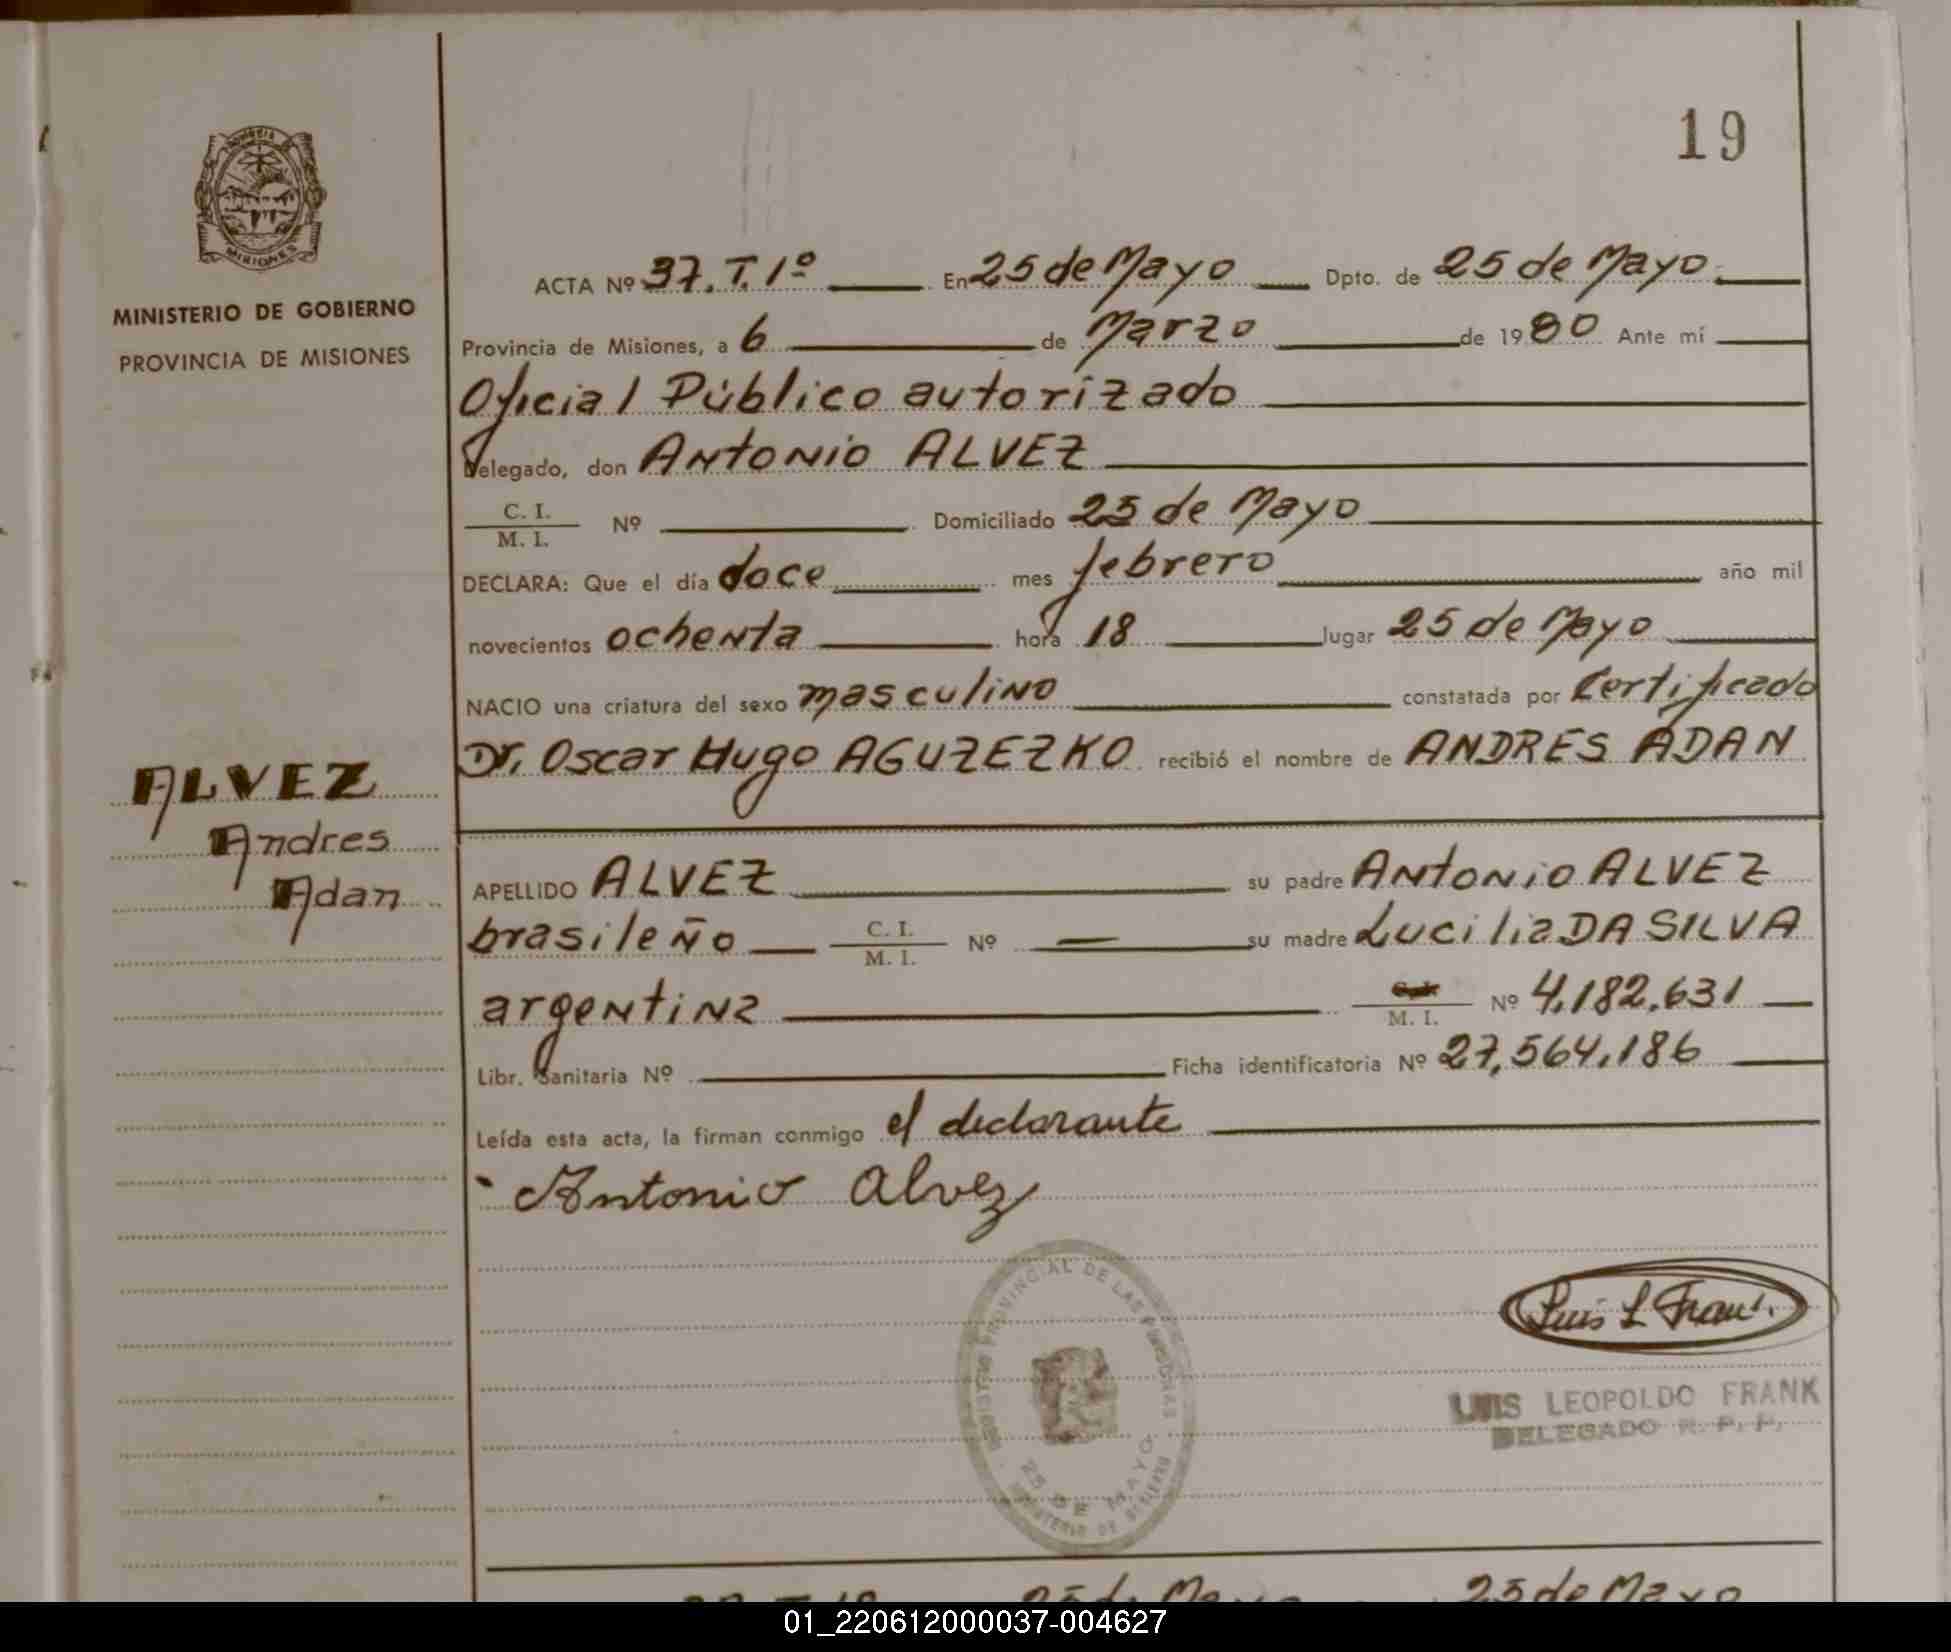 19
MISIONES
MINISTERIO DE GOBIERNO
PROVINCIA DE MISIONES
ALVEZ
Andres
Adan
ACTA Nº 37. T. 1º En 25 de Mayo Dpto. de 25 de Mayo.
Provincia de Misiones, a 6 de Marzo de 1980 Ante mí
Oficial Público autorizado
Delegado, don Antonio ALVEZ
C. I.
M. I. Nº Domiciliado 25 de Mayo
DECLARA: Que el día doce mes febrero año mil
novecientos ochenta hora 18 lugar 25 de Mayo
NACIO una criatura del sexo masculino constatada por Certificado
Dr. Oscar Hugo AGUZEZKO recibió el nombre de ANDRES ADAN
APELLIDO ALVEZ su padre Antonio ALVEZ
brasileño C. I. M. I. Nº — su madre Lucilia DA SILVA
argentina M. I. Nº 4.182.631
Libr. Sanitaria Nº Ficha identificatoria Nº 27.564.186
Leída esta acta, la firman conmigo el declarante
Antonio Alvez
REGISTRO PROVINCIAL DE LAS PERSONAS
25 DE MAYO
MINISTERIO DE GOBIERNO
Luis L Frank
LUIS LEOPOLDO FRANK
DELEGADO R. P. P.
25 de Mayo 25 de Mayo
01_220612000037-004627